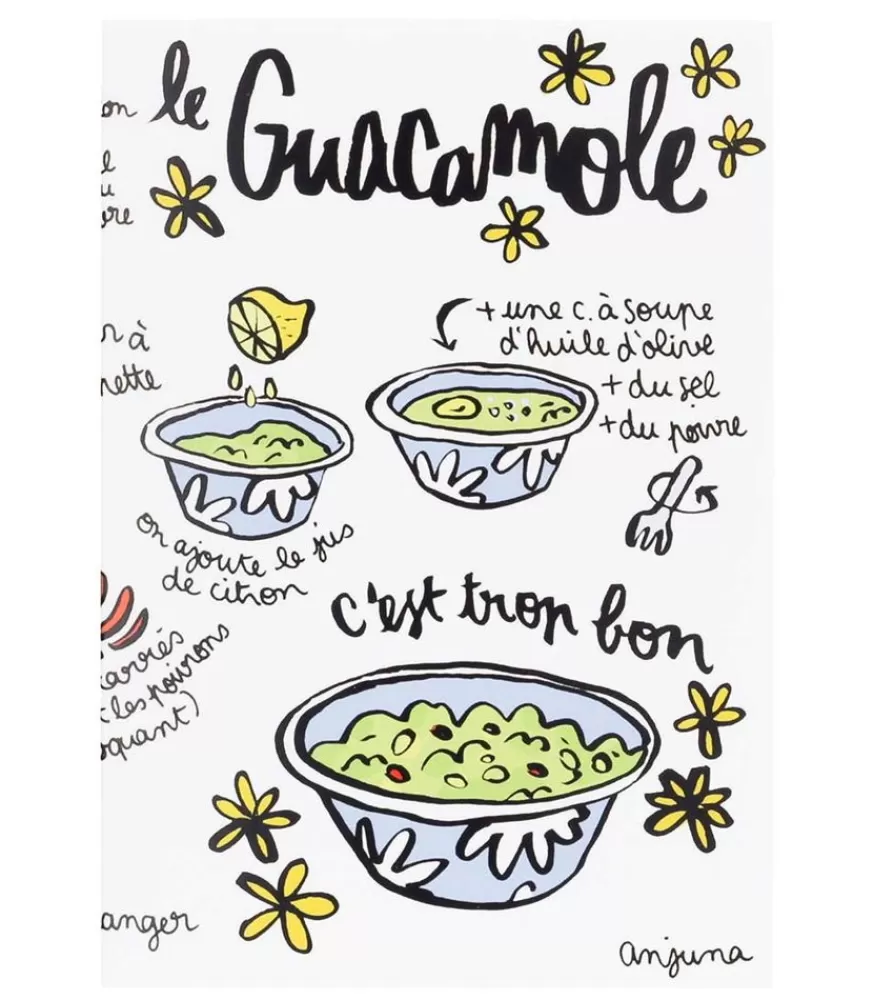 le Guacamole
on
+ une c. à soupe
d'huile d'olive
+ du sel
+ du poivre
r à
nette
on ajoute le jus
de citron
c'est trop bon
carrés
t les poivrons
oquant)
anger
anjuna